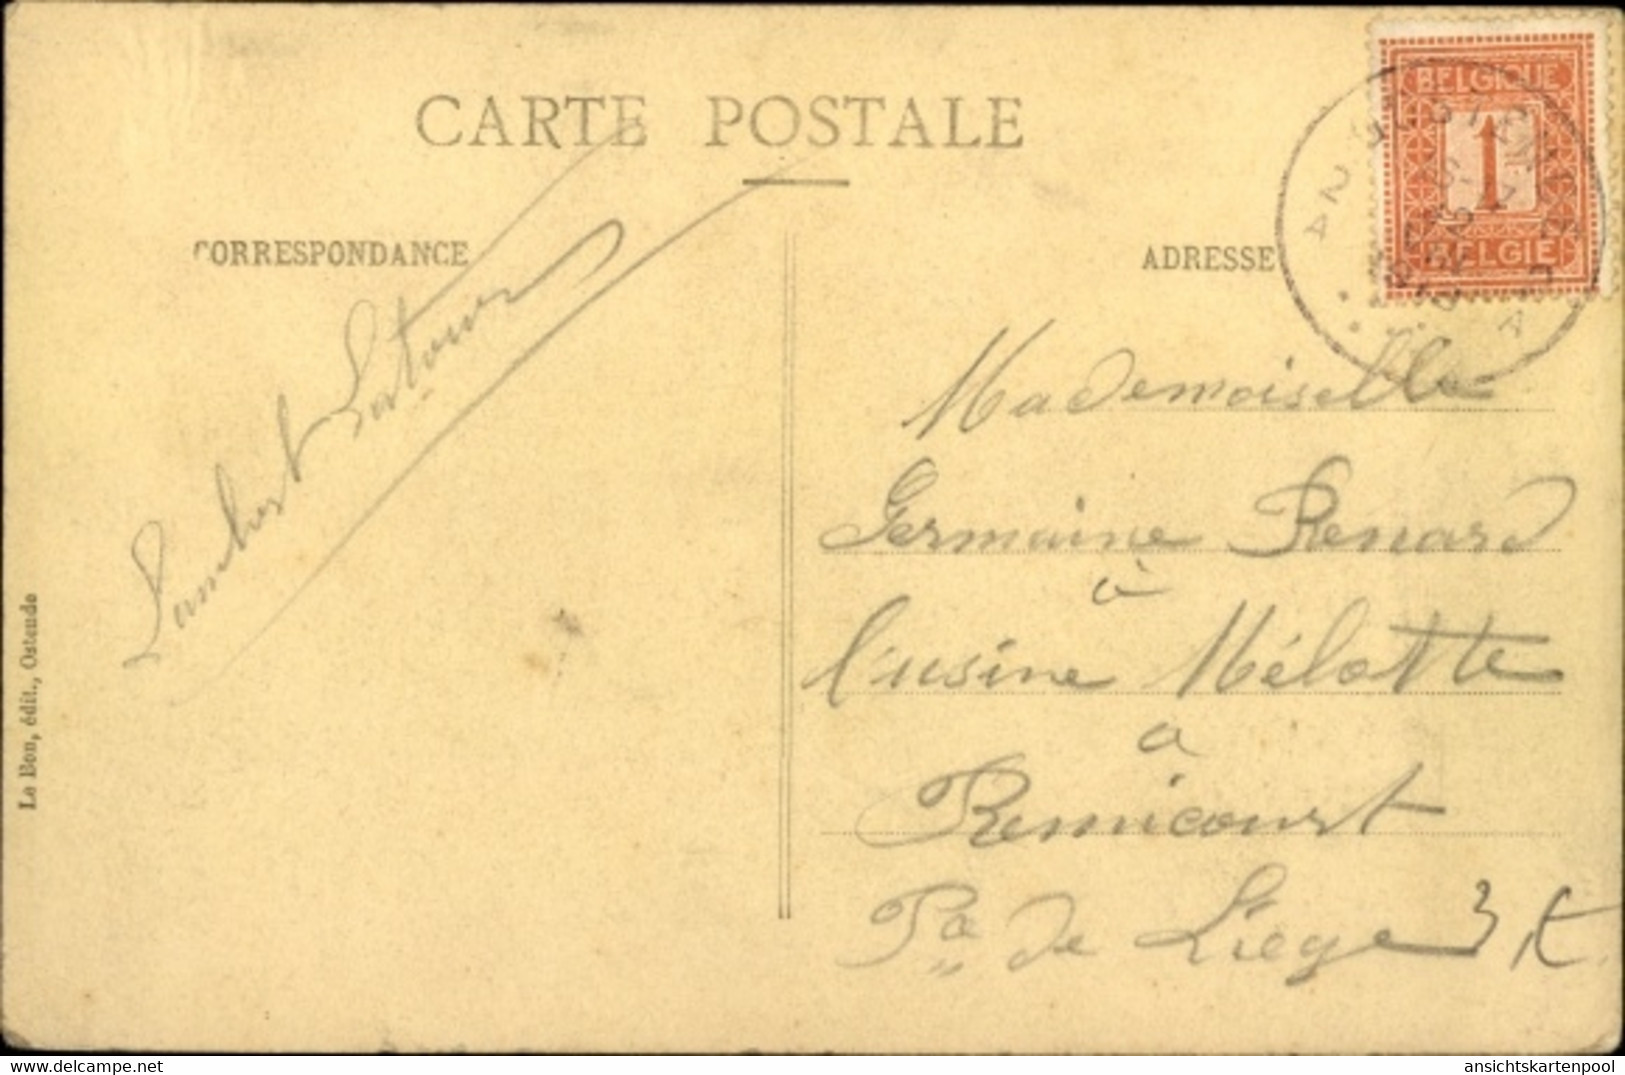 CARTE POSTALE
CORRESPONDANCE
ADRESSE
BELGIQUE
1
BELGIE
2A
Lambert Latour
Mademoiselle
Germaine Renard
à
l'usine Mélotte
a
Remicourt
Pce de Liège
Le Bon, édit., Ostende
delcampe.net
ansichtskartenpool